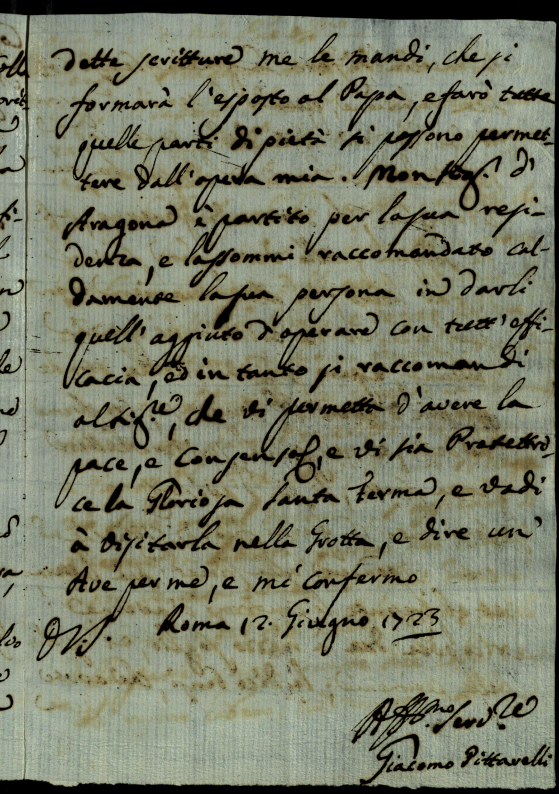 dette scritture me le mandi, che si
formarà l'esposto al Papa, e farò tutte
quelle parti di pietà si possono permet-
tere dall'opera mia. Monsig.r d'
Aragona è partito per la sua resi-
denza, e lassommi raccomandato cal-
damente la sua persona in darli
quell'aggiuto d'operare con tutt'effi-
cacia, ed in tanto si raccomandi
al Sig.re, che vi permetta d'avere la
pace, e consenso, e vi sia Protettri-
ce la Gloriosa Santa ferma, e vadi
à visitarla nella Grotta, e dire un'
Ave per me, e mi confermo
D V.S. Roma 12. Giugno 1723
Aff.mo Serv.re
Giacomo Pittarelli